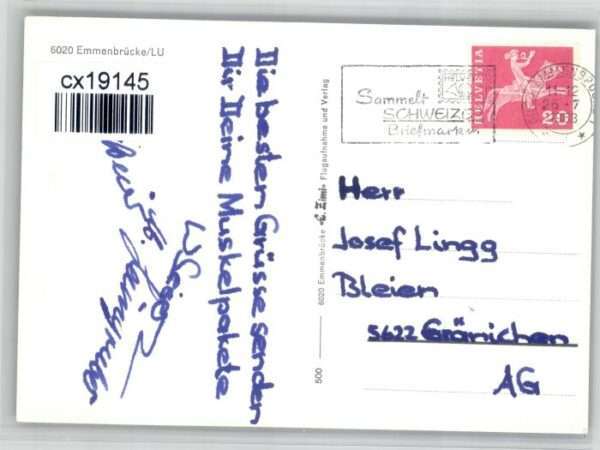 6020 Emmenbrücke/LU
cx19145
Die besten Grüsse senden
Dir Deine Muskelpakete
6020 Emmenbrücke
Flugaufnahme und Verlag
500
Sammelt
SCHWEIZER
Briefmarken
HELVETIA
20
Herr
Josef Lingg
Bleien
5622 Gränichen
AG